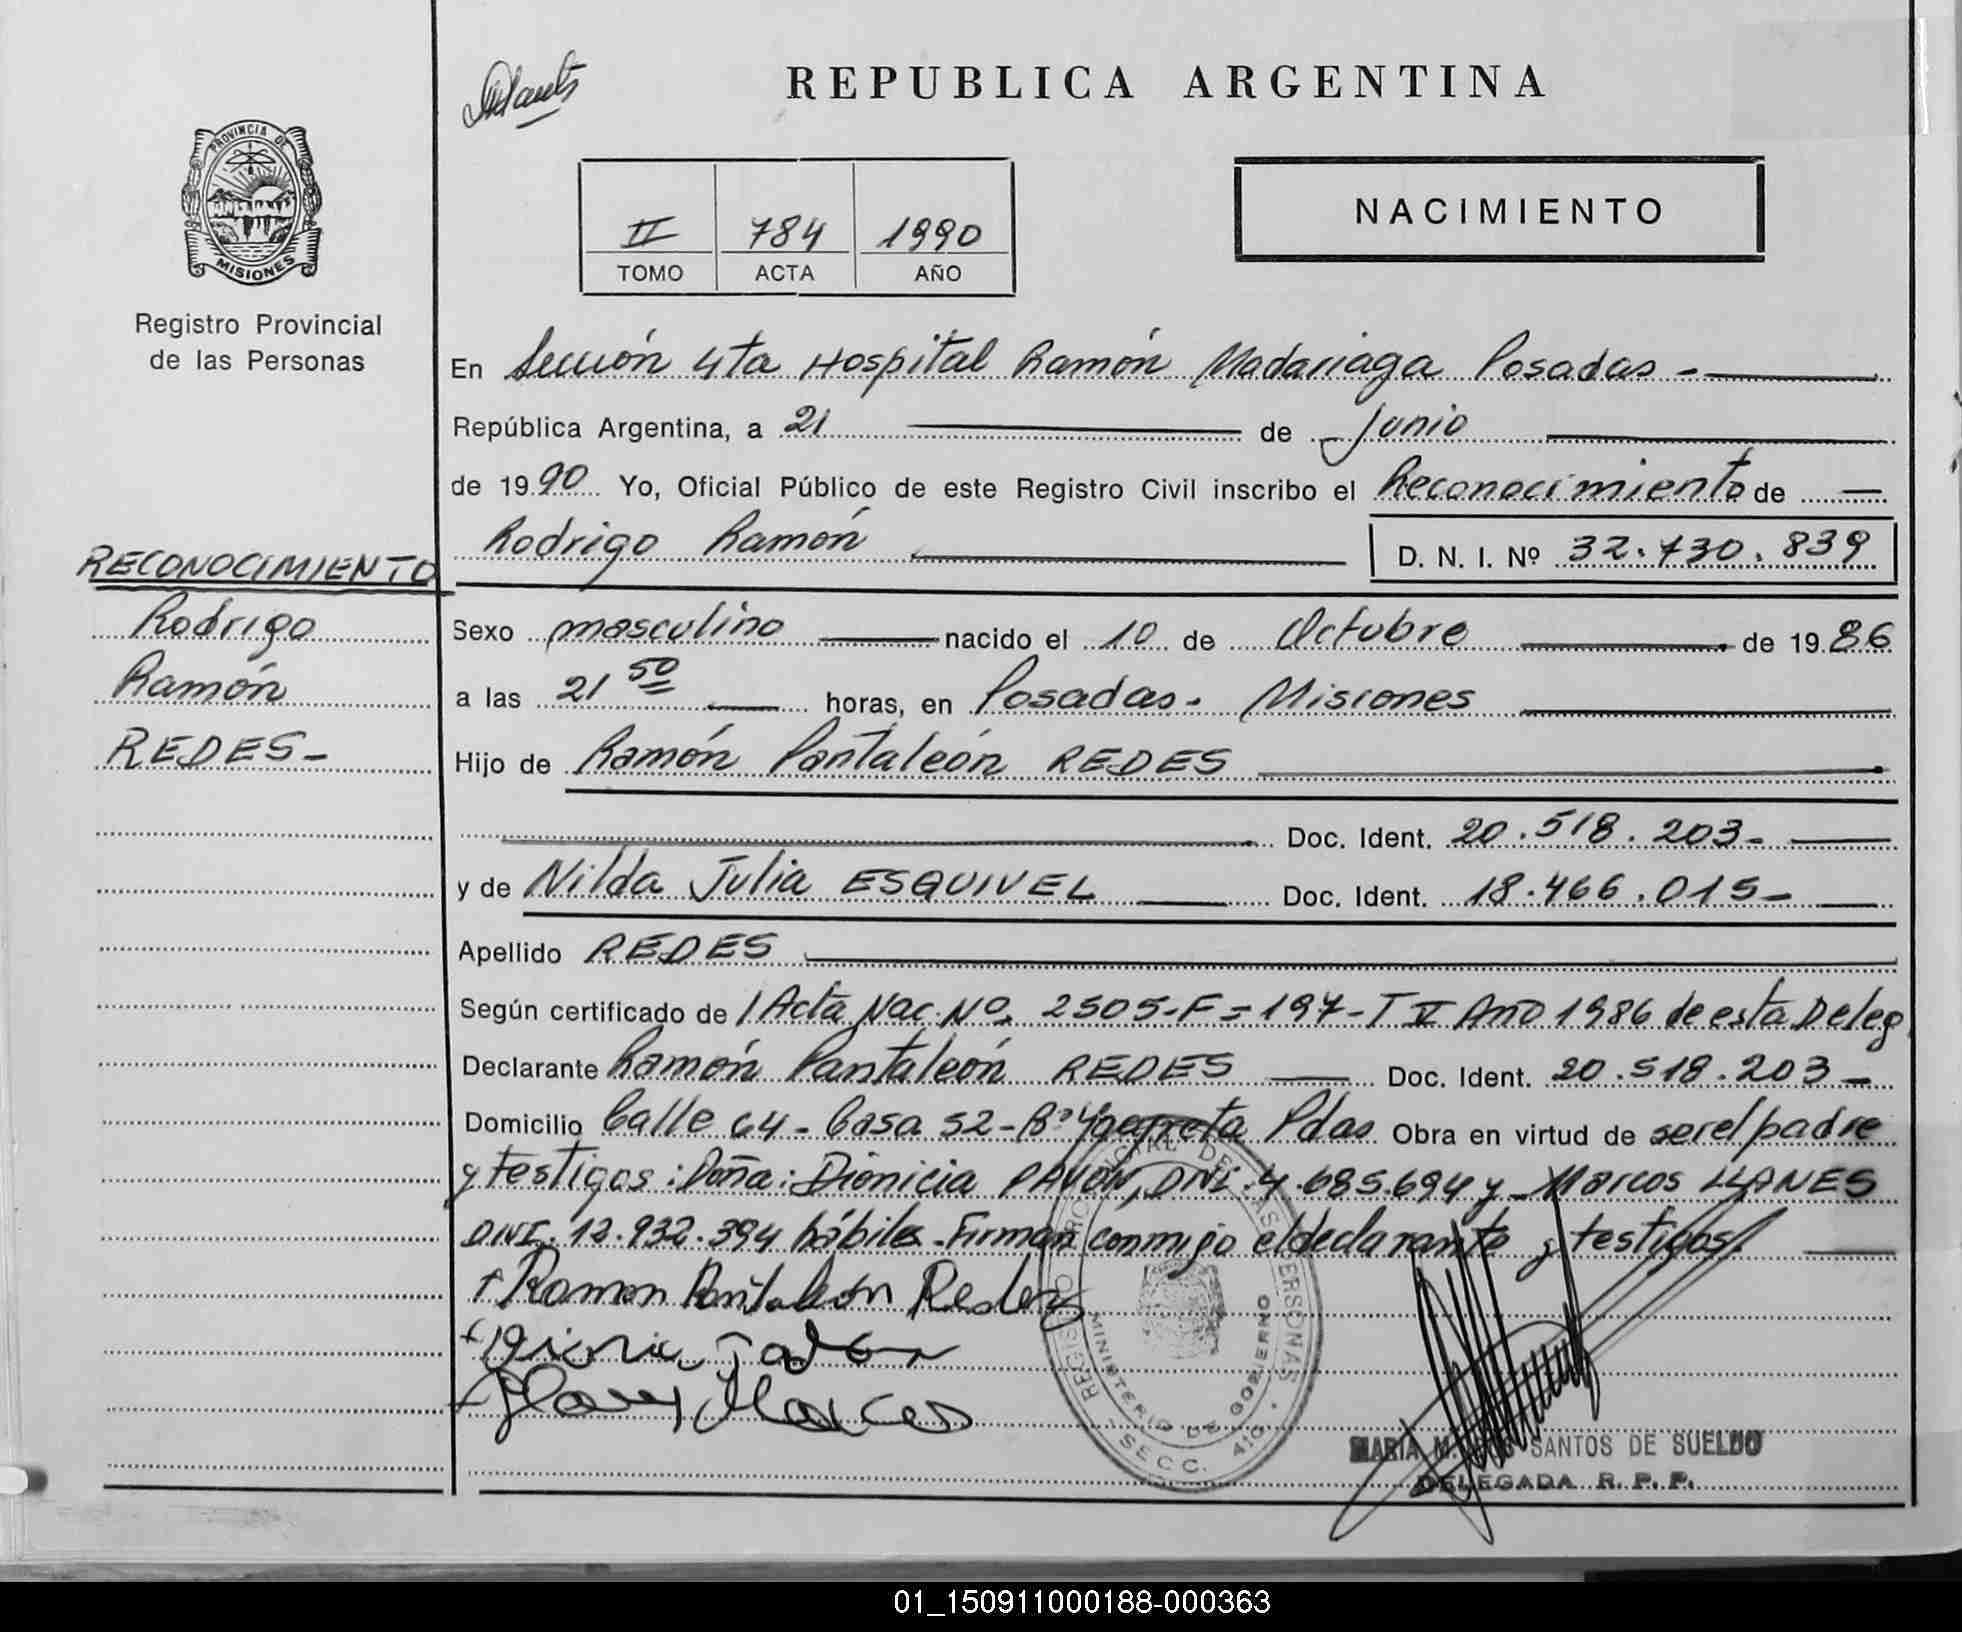 REPUBLICA ARGENTINA
PROVINCIA DE
MISIONES
Registro Provincial
de las Personas
II 784 1990
TOMO ACTA AÑO
NACIMIENTO
En Sección 4ta Hospital Ramón Madariaga Posadas -
República Argentina, a 21 de Junio
de 1990 Yo, Oficial Público de este Registro Civil inscribo el Reconocimiento de
Rodrigo Ramón D. N. I. Nº 32.730.839
RECONOCIMIENTO
Rodrigo
Ramón
REDES-
Sexo masculino nacido el 10 de Octubre de 1986
a las 21 50 horas, en Posadas - Misiones
Hijo de Ramón Pantaleón REDES
Doc. Ident. 20.518.203-
y de Nilda Julia ESQUIVEL Doc. Ident. 18.466.015-
Apellido REDES
Según certificado de 1 Acta Nac. Nº 2505-F=197-T V Año 1986 de esta Deleg
Declarante Ramón Pantaleón REDES Doc. Ident. 20.518.203-
Domicilio Calle 64 - Casa 52 - Bº Yacyreta Pdas Obra en virtud de ser el padre
y testigos: Doña: Dionicia PAVON, DNI. 4.685.694 y Marcos LLANES
DNI. 12.932.394 hábiles. Firman conmigo el declarante y testigos.
Ramon Pantaleón Redes
REGISTRO PROVINCIAL DE LAS PERSONAS
MINISTERIO DE GOBIERNO
SECC. 4ta
MARIA M. DOS SANTOS DE SUELDO
DELEGADA R. P. P.
01_150911000188-000363